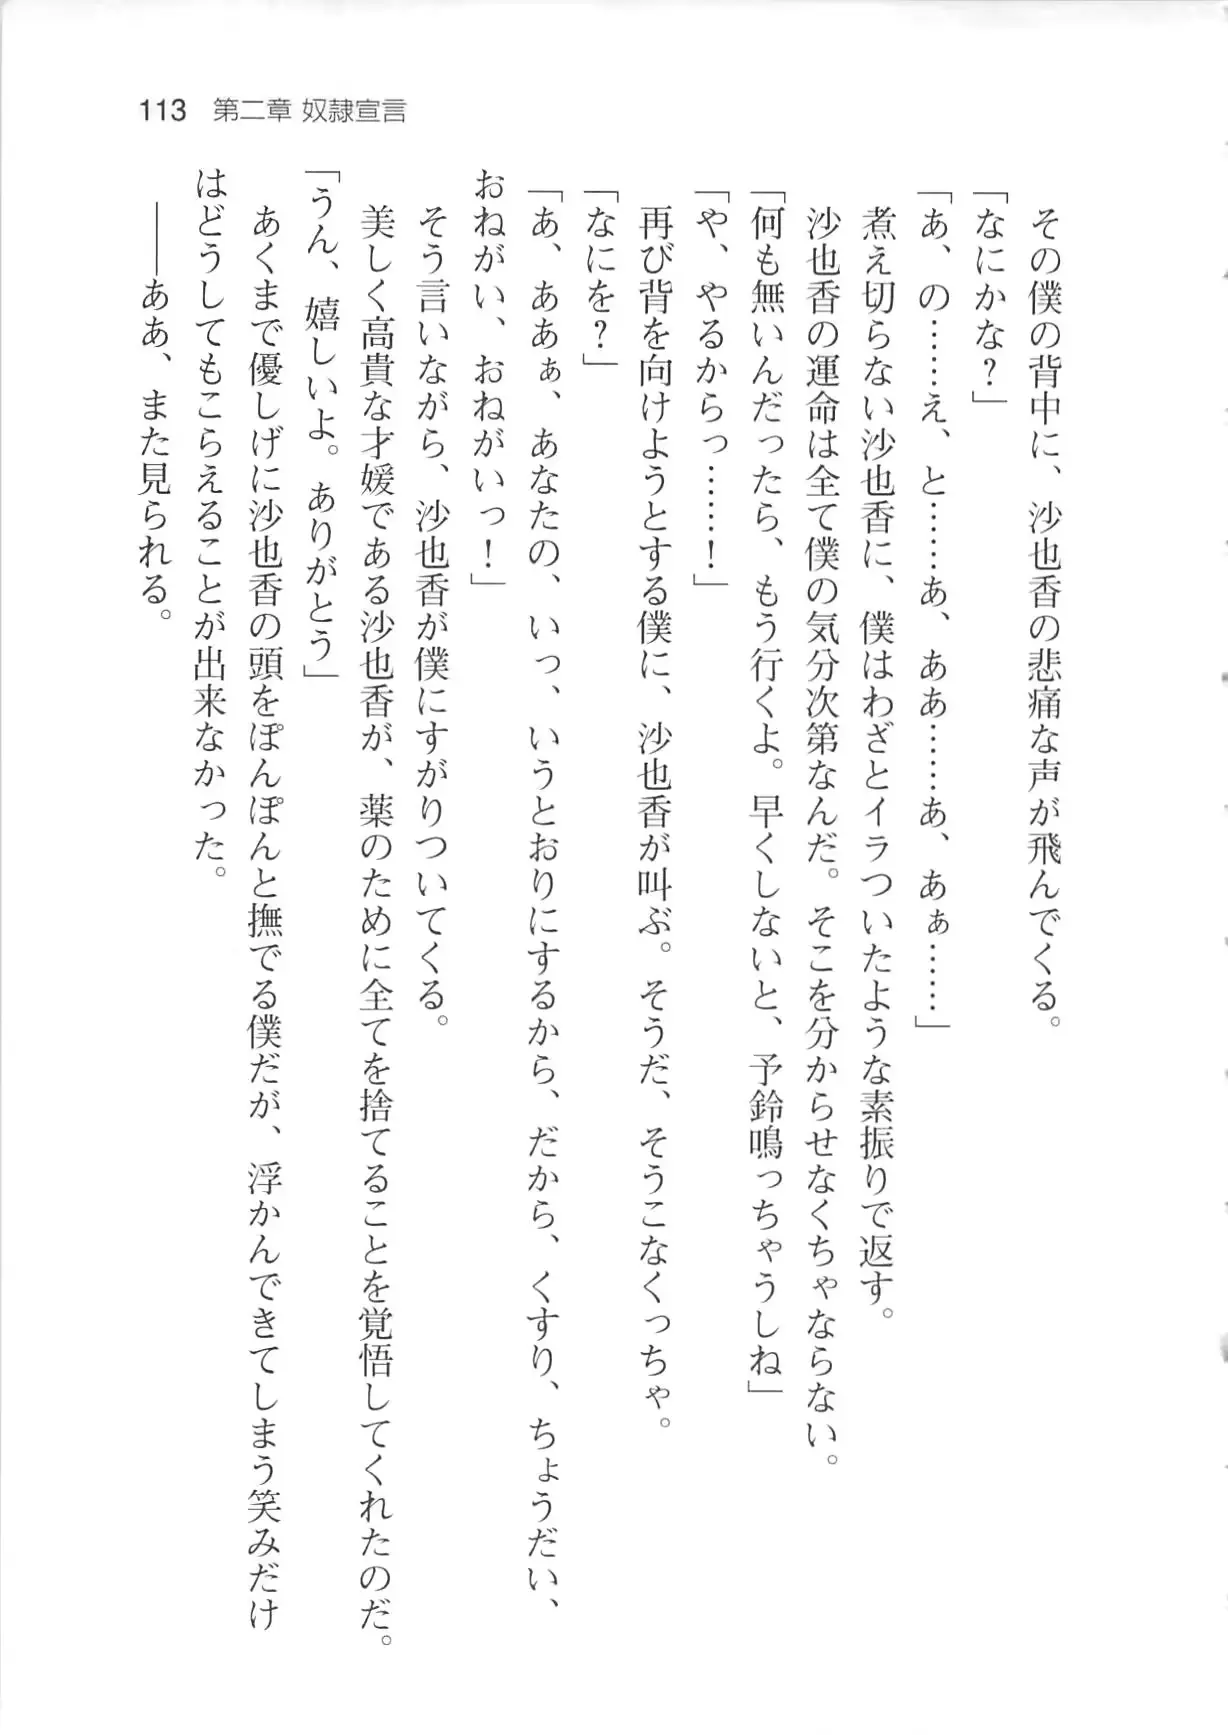 113 第二章 奴隷宣言
その僕の背中に、沙也香の悲痛な声が飛んでくる。
「なにかな？」
「あ、の……え、と……あ、ああ……あ、あぁ……」
煮え切らない沙也香に、僕はわざとイラついたような素振りで返す。
沙也香の運命は全て僕の気分次第なんだ。そこを分からせなくちゃならない。
「何も無いんだったら、もう行くよ。早くしないと、予鈴鳴っちゃうしね」
「や、やるからっ……！」
再び背を向けようとする僕に、沙也香が叫ぶ。そうだ、そうこなくっちゃ。
「なにを？」
「あ、ああぁ、あなたの、いっ、いうとおりにするから、だから、くすり、ちょうだい、
おねがい、おねがいっ！」
そう言いながら、沙也香が僕にすがりついてくる。
美しく高貴な才媛である沙也香が、薬のために全てを捨てることを覚悟してくれたのだ。
「うん、嬉しいよ。ありがとう」
あくまで優しげに沙也香の頭をぽんぽんと撫でる僕だが、浮かんできてしまう笑みだけ
はどうしてもこらえることが出来なかった。
――ああ、また見られる。